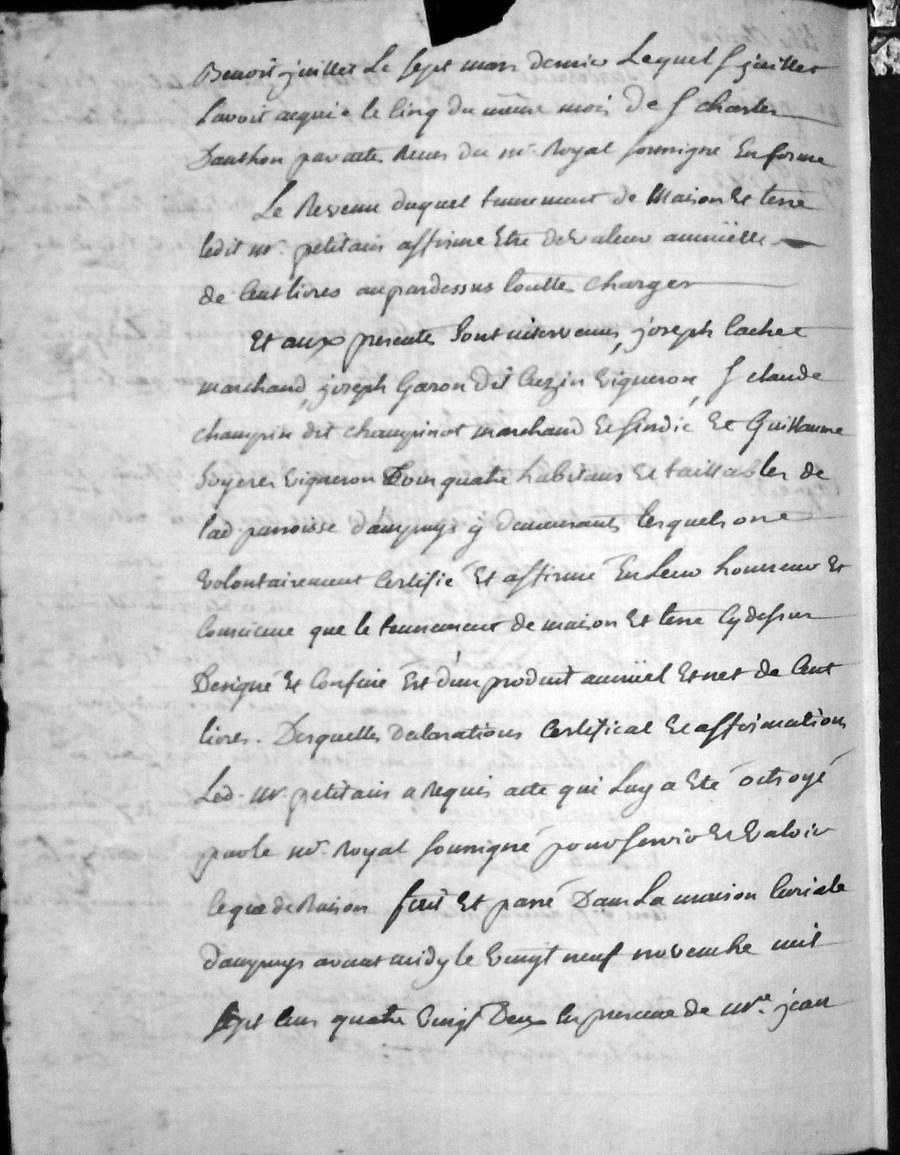 Benoit juillet Le sept mars dernier Lequel S juillet
Lavoit acquis le Cinq du même mois De S charles
Danthon par actes Reçus du nre Royal soussigné En forme
Le Revenu duquel tennement de Maison Et terre
ledit mr petitain affirme Etre de valeur annuëlle
de Cent livres au pardessus touttes charges
Et aux presentes sont intervenus, joseph Cachet
marchand, joseph Garon Dit Cuzin vigneron, S claude
champin dit champinot marchand Et sindic Et Guillaume
vigneron Tous quatre habitans Et taillables de
lad parroisse d'ampuys ÿ demeurants lesquels ont
volontairement Certifié Et affirmé En Leur honneur Et
Conscience que le tennement de maison Et terre Cydessus
Designé Et Confiné Est d'un produit annuël Et net de Cent
livres. Desquelles declarations Certificat Et affirmations
Led. mr. petitain a Requis acte qui Luy a Eté octroyé
par le nre Royal soussigné pour servir Et valoir
Ce que de Raison fait Et passé Dans La maison Curiale
d'ampuys avant midy le vingt neuf novembre mil
sept Cens quatre vingt Deux En presence de mre. jean